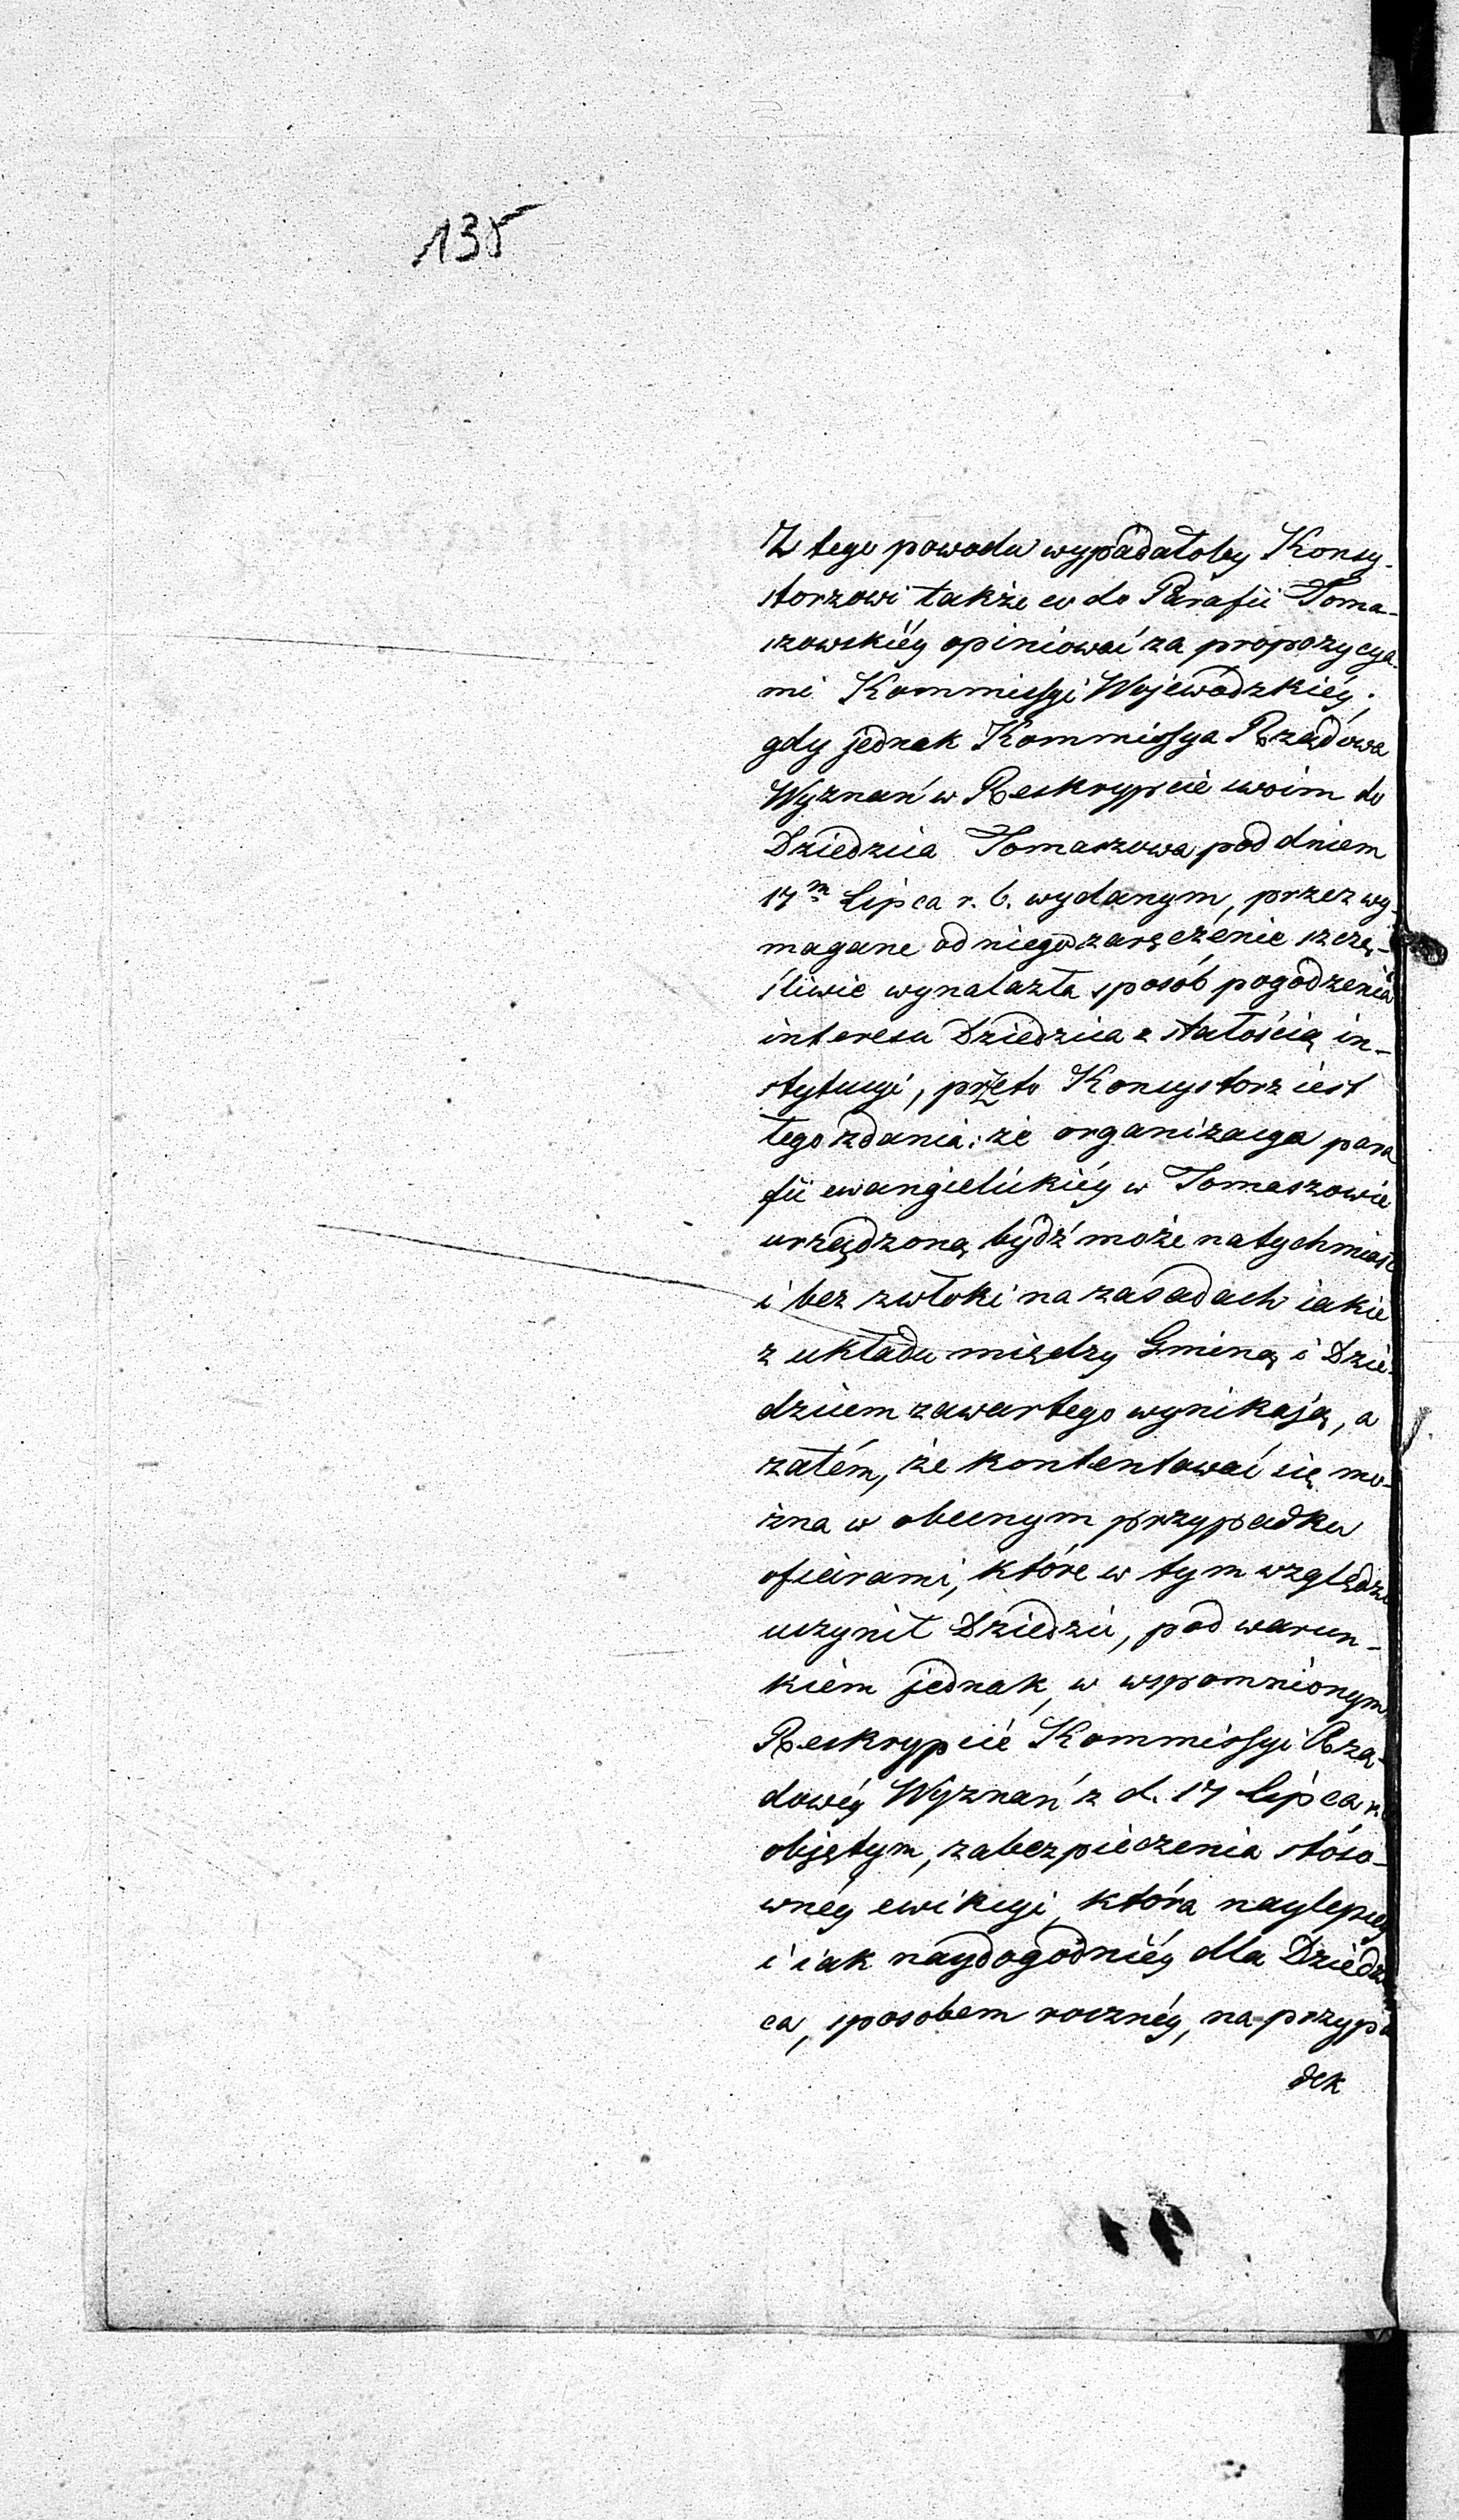 135
Z tego powodu wypadałoby Konsy-
storzowi także co do Parafii Toma-
szowskiéy opiniować za propozycya-
mi Kommissyi Wojewódzkiéy;
gdy jednak Kommissya Rządowa
Wyznań w Reskrypcie swoim do
Dziedzica Tomaszowa pod dniem
17m Lipca r. b. wydanym, przez wy-
magane od niego zaręczenie szczę-
śliwie wynalazła sposób pogodzenia
interesu Dziedzica z stałością in-
stytucyi, przeto Konsystorz iest
tego zdania: że organizacya para
fii ewangielickiéy w Tomaszowie
urządzoną bydź może natychmiast
i bez zwłoki na zasadach iakie
z układu między Gminą i Dzie-
dzicem zawartego wynikają, a
zatém, że kontentować się mo-
żna w obecnym przypadku
ofiarami, które w tym względzie
uczynił Dziedzic, pod warun-
kiem jednak, w wspomnionym
Reskrypcie Kommissyi Rzą-
dowéy Wyznań z d. 17 Lipca r.
objętym, zabezpieczenia stóso-
wnéy ewikcyi, która naylepiey
i iak naydogodniéy dla Dziedzi
ca, sposobem roczney, na przypa
dek